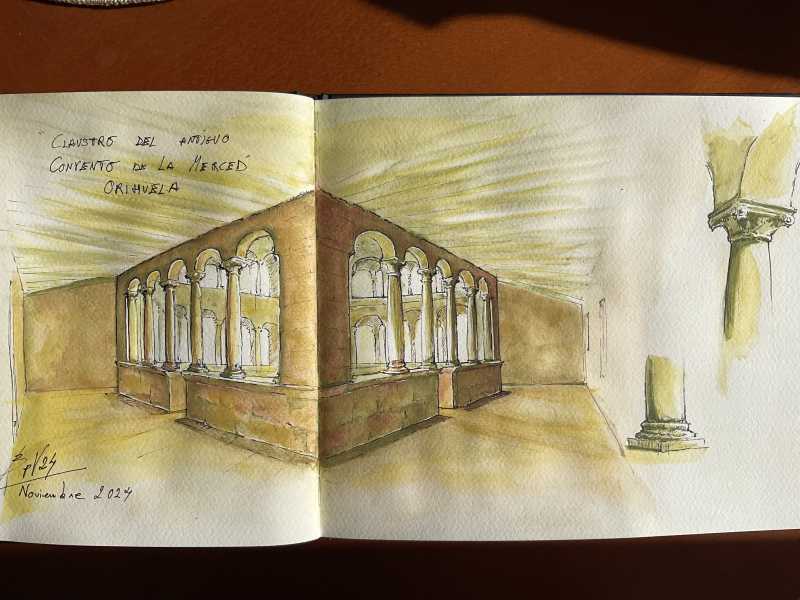 "CLAUSTRO DEL ANTIGUO
CONVENTO DE LA MERCED"
ORIHUELA
24
Noviembre 2024